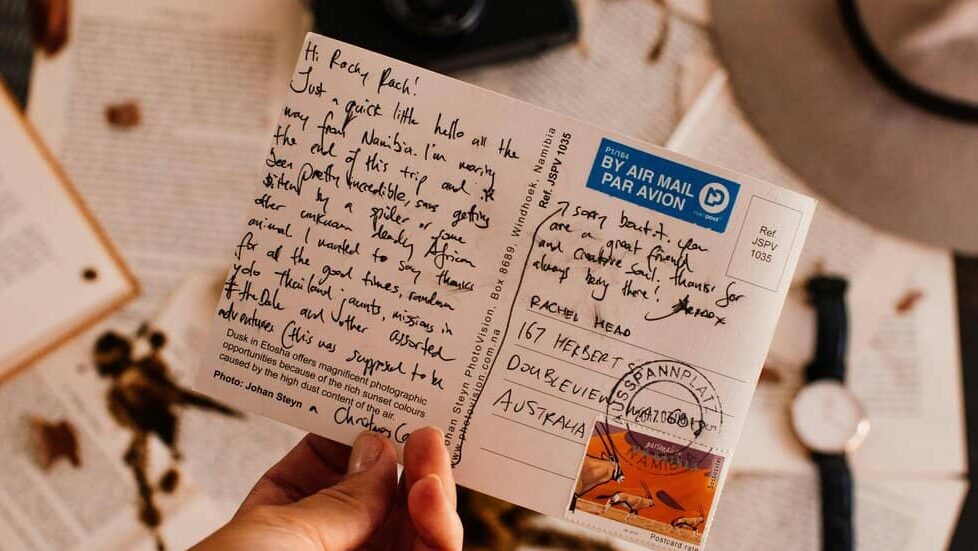 Hi Rachy Rach!
Just a quick little hello all the
way from Namibia. I'm nearing
the end of this trip and it
been pretty incredible, sans getting
bitten by a spider or some
other unknown deadly African
animal. I wanted to say thanks
for all the good times, random
yolo Thailand jaunts, missions in
#theDale and other assorted
adventures (this was supposed to be
a Christmas
Dusk in Etosha offers magnificent photographic
opportunities because of the rich sunset colours
caused by the high dust content of the air.
Photo: Johan Steyn
Johan Steyn PhotoVision, Box 8689, Windhoek, Namibia
www.photovision.com.na
Ref. JSPV 1035
P1/164
BY AIR MAIL
PAR AVION
nampost
Ref.
JSPV
1035
sorry bout it. you
are a great friend
and creative soul, thanks for
always being there!
RACHEL HEAD
167 HERBERT
DOUBLEVIEW
AUSTRALIA
AUSSPANNPLATZ
NAMIBIA
Postcard rate